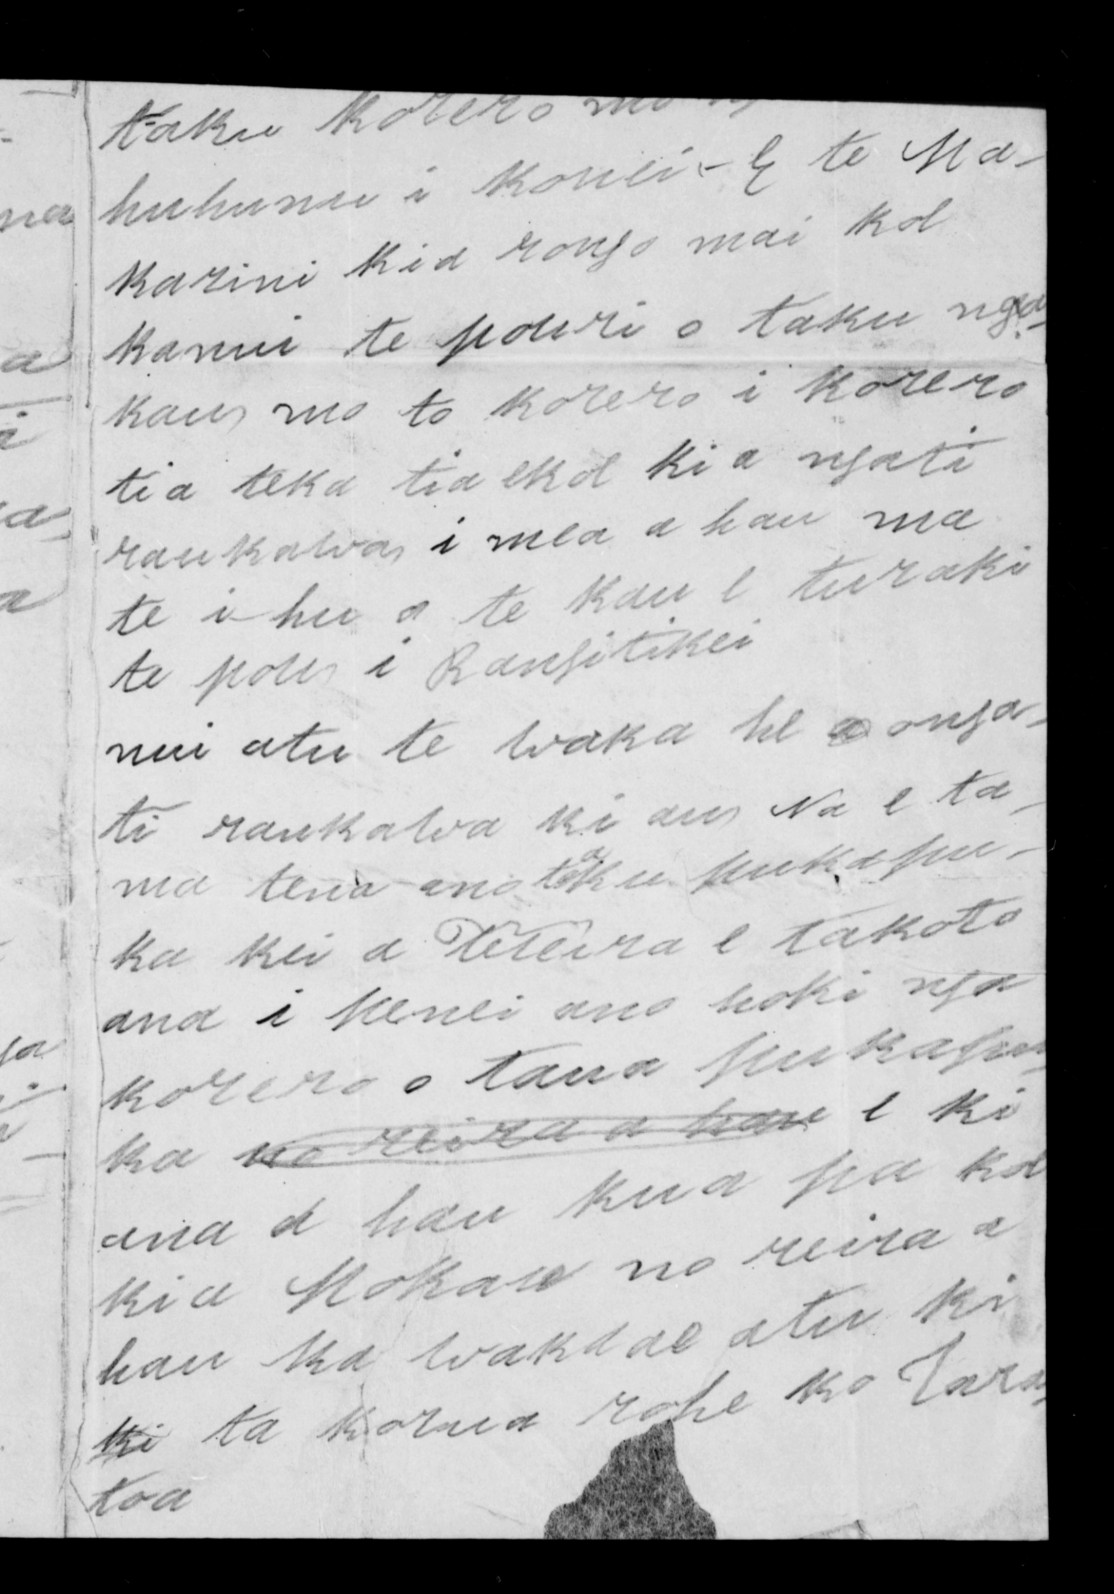 taku korero mo
huhunu i konei - E te Ma-
karini kia rongo mai koe
kanui te pouri o taku nga-
kau, mo to korero i korero
tia teka tia e koe ki a ngati
raukawa, i mea a hau ma
te i-hu o te kau e turaki
te pou, i Rangitikei
nui atu te waka he a o nga-
ti raukawa ki au, Na e ta-
ma tena ano taku pukapu-
ka kei a Teteira e takoto
ana i kenei ano hoki nga
korero o taua pukapu
ka no reira a hau e ki
ana a hau kua pa koe
kia Mokau no reira a
hau ka wakaae atu ki
ki ta korua rohe ko Tara
toa